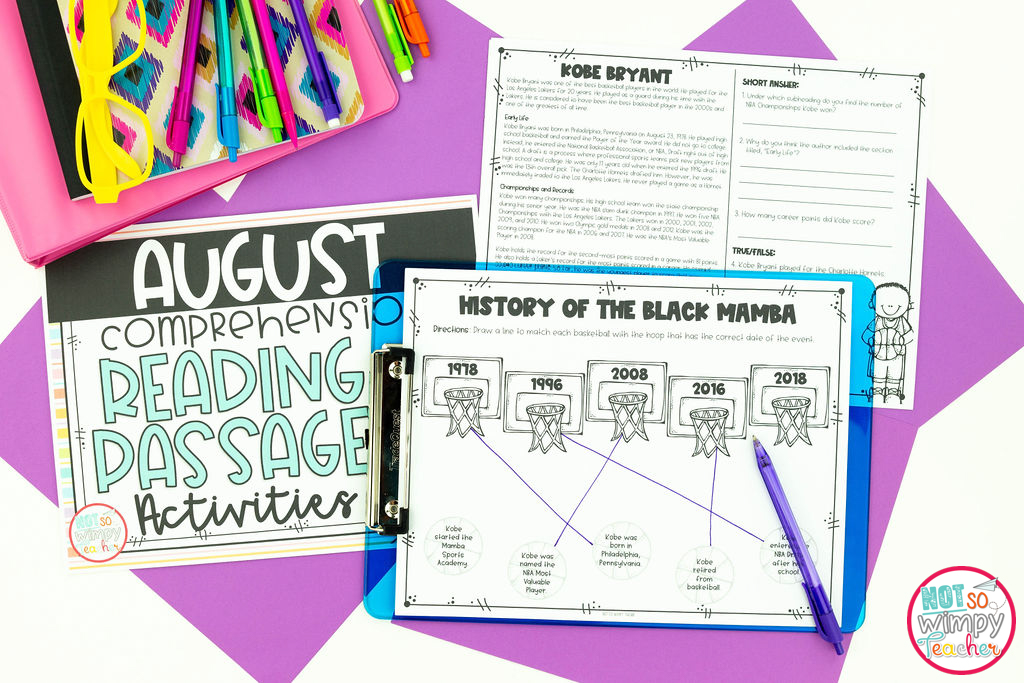 AUGUST
comprehensio
READING
PASSAGE
Activities
NOT SO
wimpy
Teacher
KOBE BRYANT
Kobe Bryant was one of the best basketball players in the world. He played for the Los
Angeles Lakers for 20 years. He played as a guard during his time with the
Lakers. He is considered to have been the best basketball player in the 2000s and
one of the greatest of all time.
Early Life
Kobe Bryant was born in Philadelphia, Pennsylvania on August 23, 1978. He played high
school basketball and earned the Player of the Year award. He did not go to college.
Instead, he entered the National Basketball Association, or NBA, Draft right out of high
school. A draft is a process where professional sports teams pick new players from
high school and college. He was only 17 years old when he entered the 1996 draft. He
was the 13th overall pick. The Charlotte Hornets drafted him. However, he was
immediately traded to the Los Angeles Lakers. He never played a game as a Hornet.
Championships and Records
Kobe won many championships. His high school team won the state championship
during his senior year. He was the NBA slam dunk champion in 1997. He won five NBA
Championships with the Los Angeles Lakers. The Lakers won in 2000, 2001, 2002,
2009, and 2010. He won two Olympic gold medals in 2008 and 2012. Kobe was the
scoring champion for the NBA in 2006 and 2007. He was the NBA's Most Valuable
Player in 2008.
Kobe holds the record for the second-most points scored in a game with 81 points.
He also holds a Laker's record for the most points scored in a career. He scored
SHORT ANSWER:
1. Under which subheading do you find the number of
NBA Championships Kobe won?
2. Why do you think the author included the section
titled, "Early Life"?
3. How many career points did Kobe score?
TRUE/FALSE:
4. Kobe Bryant played for the Charlotte Hornets.
HISTORY OF THE BLACK MAMBA
Directions: Draw a line to match each basketball with the hoop that has the correct date of the event.
1978
1996
2008
2016
2018
Kobe
started the
Mamba
Sports
Academy.
Kobe was
named the
NBA Most
Valuable
Player.
Kobe was
born in
Philadelphia,
Pennsylvania.
Kobe
retired
from
basketball.
Kobe
NBA
after
school
NOT SO
wimpy
Teacher